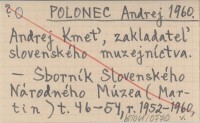 ?O POLONEC Andrej 1960.
Andrej Kmeť, zakladateľ
slovenského muzejníctva.
– Sborník Slovenského
Národného Múzea (Mar-
tin) t. 46-54, r. 1952-1960,
v.